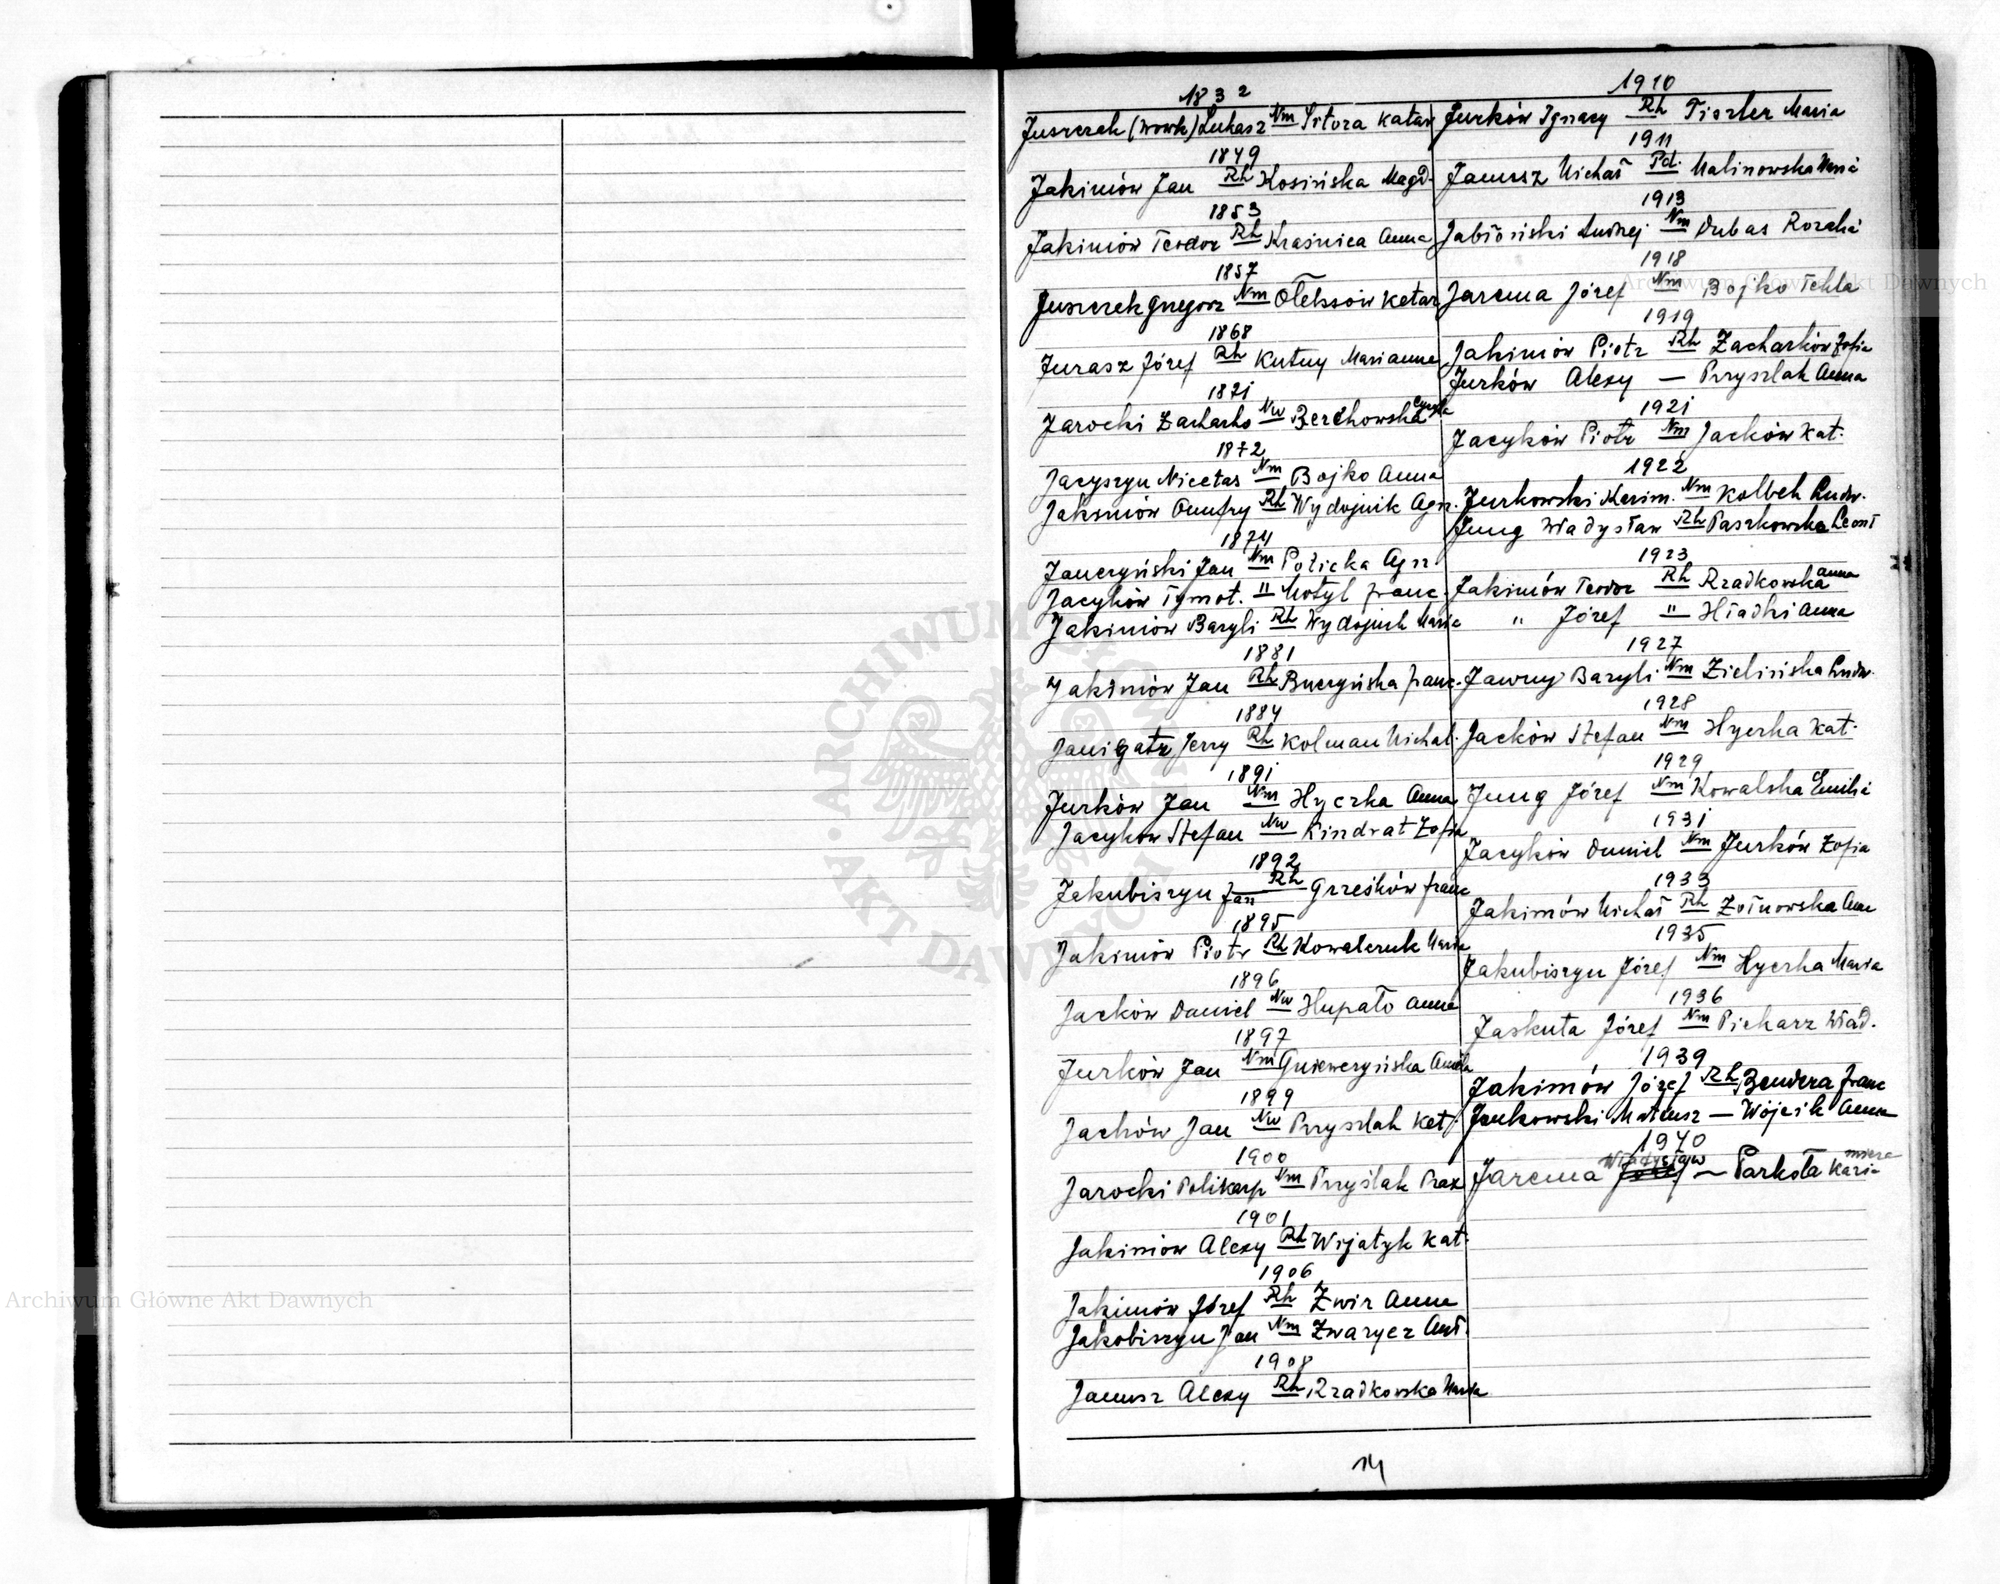 1832
Juszczak (Wowk) Łukasz Nm Sztoza Katar
1849
Jakimów Jan Rh Kosińska Magd.
1853
Jakimów Teodor Rh Kraśnica Anna
1857
Juszczak Grzegorz Nm Ołeksów Katar
1868
Jurasz Józef Rh Kutny Marianna
1871
Jarocki Zacharko Nw Berchowska
1872
Jacyszyn Nicetas Nm Bojko Anna
Jakimów Onufry Rh Wydojnik Agn.
1874
Janczyński Jan Nm Policka Agn
Jacyków Tymot. " Motyl Franc.
Jakimów Bazyli Rh Wydojnik Maria
1881
Jakimów Jan Rh Buczyńska Franc.
1884
Jerzy Rh Kolman Michal.
1891
Jurków Jan Nm Hyczka Anna
Jacyków Stefan Nw Kindrat Zofia
1892
Jakubiszyn Jan Rh Grześków Franc
1895
Jakimów Piotr Rh Kowalczuk Maria
1896
Jacków Daniel Nw Hupało Anna
1897
Jurków Jan Nm Gniewczyńska
1899
Jacków Jan Nw Przyszlak Kat.
1900
Jarocki Polikarp Nm Pryślak Prax
1901
Jakimów Alexy Rh Wijatyk Kat.
1906
Jakimów Józef Rh Żwir Anna
Jakobiszyn Jan Nm Zwarycz Ant.
1908
Janusz Alexy Rh Rzadkowska Maria
1910
Jurków Ignacy Rh Tiszler Maria
1911
Janusz Michał Pd. Malinowska Maria
1913
Jabłoński Andrzej Nm Dubas Rozalia
1918
Jarema Józef Nm Bojko Tekla
1919
Jakimów Piotr Rh Zacharków Zofia
Jurków Alexy — Przyszlak Anna
1921
Jacyków Piotr Nm Jacków Kat.
1922
Jurkowski Kazim. Nm Kolbek Ludw.
Jung Władysław Rh Paszkowska Leont
1923
Jakimów Teodor Rh Rzadkowska Anna
" Józef " Hładki Anna
1927
Jawny Bazyli Nm Zielińska Ludw.
1928
Jacków Stefan Nm Hyczka Kat.
1929
Jung Józef Nm Kowalska Emilia
1931
Jacyków Daniel Nm Jurków Zofia
1933
Jakimów Michał Rh Żołnowska Anna
1935
Jakubiszyn Józef Nm Hyczka Maria
1936
Jaskuta Józef Nm Piekarz Wład.
1939
Jakimów Józef Rh Bendera Franc
Jankowski Mateusz — Wójcik Anna
1940
Jarema Władysław — Parkoła Kazimiera
14
Archiwum Główne Akt Dawnych
Archiwum Główne Akt Dawnych